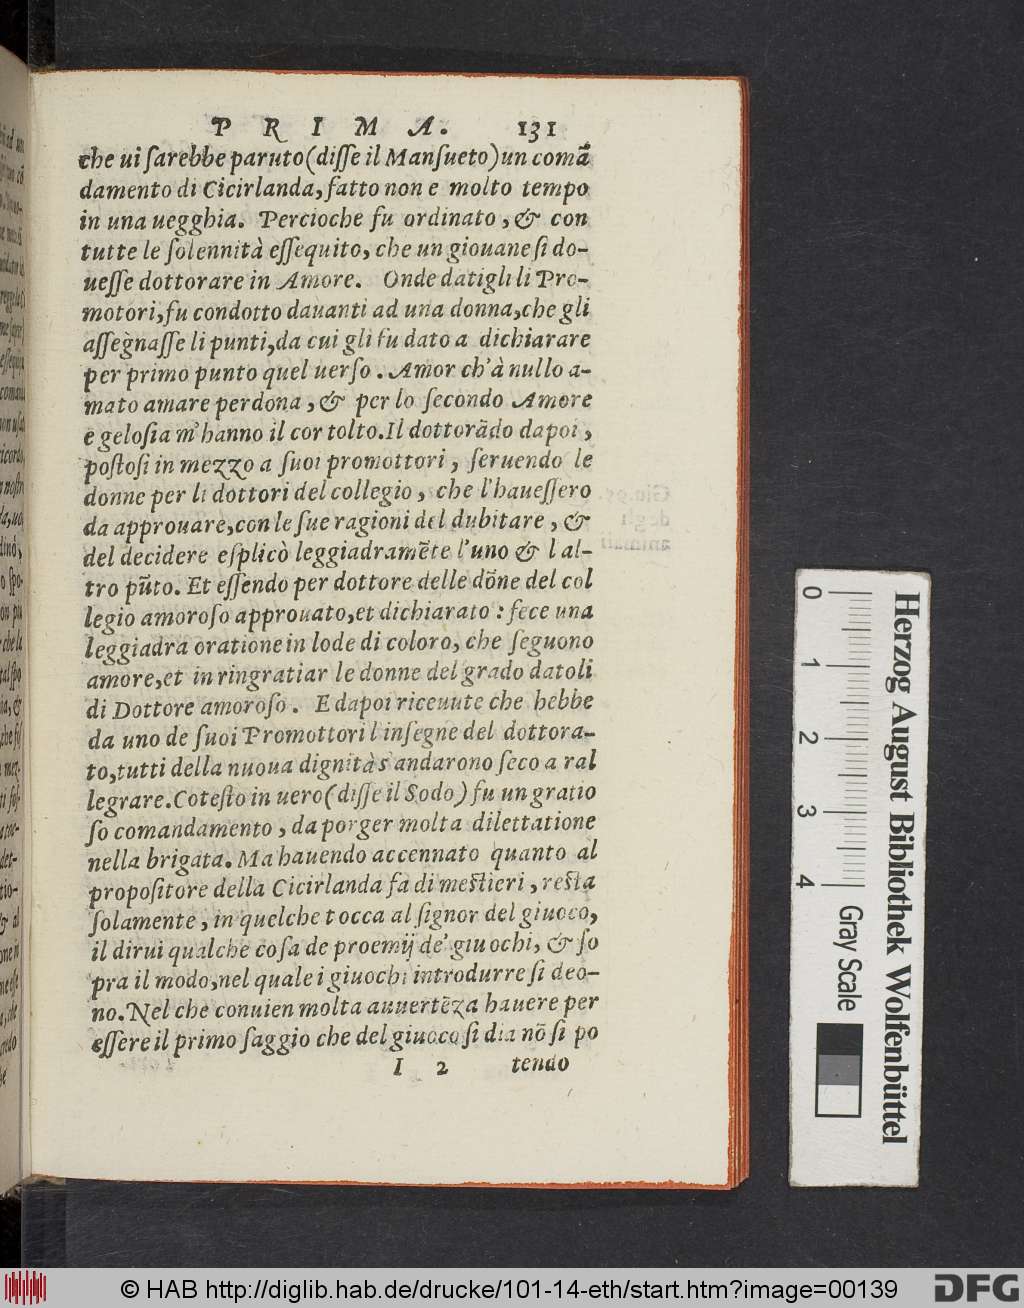 PRIMA. 131
che ui ſarebbe paruto (diſſe il Manſueto) un comã
damento di Cicirlanda, fatto non e molto tempo
in una uegghia. Percioche fu ordinato, & con
tutte le ſolennità eſſequito, che un giouane ſi do-
ueſſe dottorare in Amore. Onde datigli li Pro-
motori, fu condotto dauanti ad una donna, che gli
aſſegnaſſe li punti, da cui gli fu dato a dichiarare
per primo punto quel uerſo. Amor ch'à nullo a-
mato amare perdona, & per lo ſecondo Amore
e geloſia m'hanno il cor tolto. Il dottorãdo dapoi,
poſtoſi in mezzo a ſuoi promottori, ſeruendo le
donne per li dottori del collegio, che l'haueſſero
da approuare, con le ſue ragioni del dubitare, &
del decidere eſplicò leggiadramẽte l'uno & l al-
tro pũto. Et eſſendo per dottore delle dõne del col
legio amoroſo approuato, et dichiarato: fece una
leggiadra oratione in lode di coloro, che ſeguono
amore, et in ringratiar le donne del grado datoli
di Dottore amoroſo. E dapoi riceuute che hebbe
da uno de ſuoi Promottori l'inſegne del dottora-
to, tutti della nuoua dignità s'andarono ſeco a ral
legrare. Coteſto in uero (diſſe il Sodo) fu un gratio
ſo comandamento, da porger molta dilettatione
nella brigata. Ma hauendo accennato quanto al
propoſitore della Cicirlanda fa di meſtieri, reſta
ſolamente, in quel che tocca al ſignor del giuoco,
il dirui qualche coſa de proemij de' giuochi, & ſo
pra il modo, nel quale i giuochi introdurre ſi deo-
no. Nel che conuien molta auuertẽza hauere per
eſſere il primo ſaggio che del giuoco ſi dia nõ ſi po
I 2 tendo
0 1 2 3 4
Herzog August Bibliothek Wolfenbüttel
Gray Scale
© HAB http://diglib.hab.de/drucke/101-14-eth/start.htm?image=00139
DFG